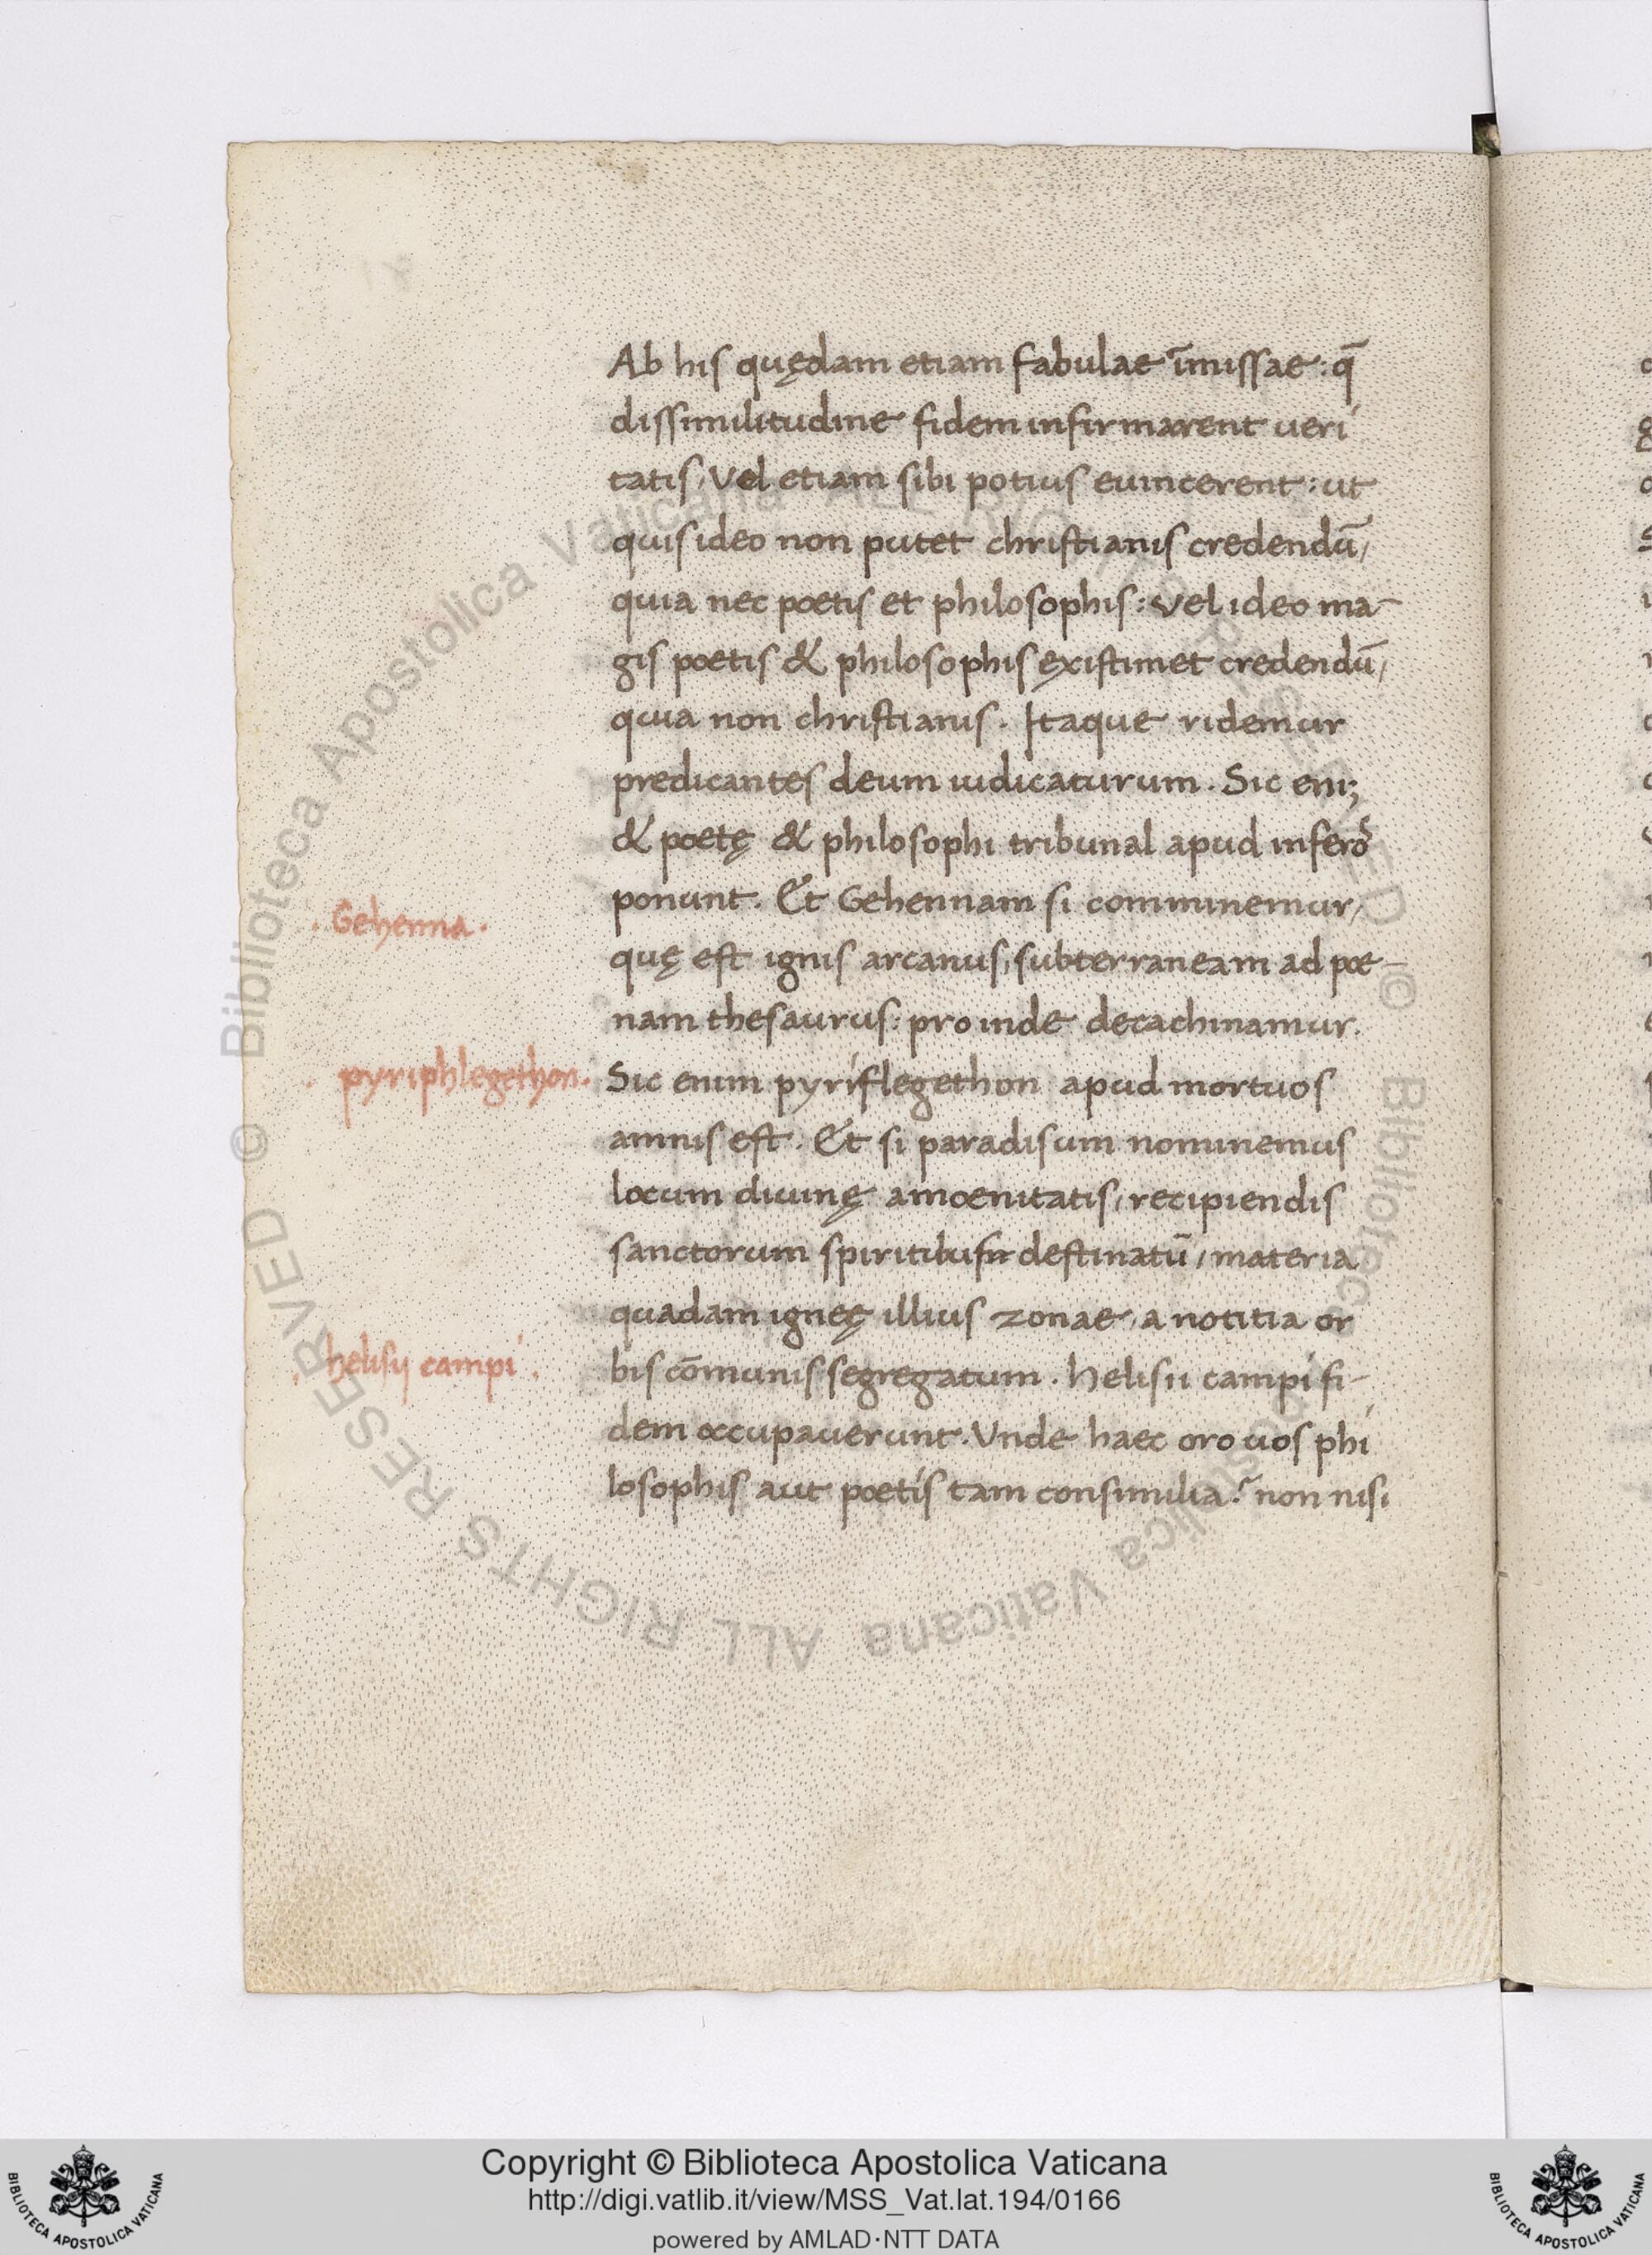 Ab his quędam etiam fabulae īmissae: q̄
dissimilitudine fidem infirmarent ueri
tatis, Vel etiam sibi potius euincerent: ut
quis ideo non putet christianis credendū,
quia nec poetis et philosophis: Vel ideo ma-
gis poetis & philosophis existimet credendū,
quia non christianis. Itaque ridemur
predicantes deum iudicaturum. Sic eni;
& poetę & philosophi tribunal apud inferos
ponunt. Et Gehennam si comminemur,
. Gehenna.
quę est ignis arcanus, subterraneam ad poe-
nam thesaurus: proinde decachinamur.
. pyriphlegethon.
Sic enim pyriflegethon apud mortuos
amnis est. Et si paradisum nominemus
locum diuinę amoenitatis, recipiendis
sanctorum spiritibus destinatū, materia
quadam igneę illius zonae, a notitia or
. helisij campi.
bis cōmunis segregatum. Helisii campi fi-
dem occupauerunt. Vnde haec oro uos phi
losophis aut poetis tam consimilia? non nisi
© Biblioteca Apostolica Vaticana ALL RIGHTS RESERVED
© Biblioteca Apostolica Vaticana ALL RIGHTS RESERVED
Copyright © Biblioteca Apostolica Vaticana
http://digi.vatlib.it/view/MSS_Vat.lat.194/0166
powered by AMLAD·NTT DATA
BIBLIOTECA APOSTOLICA VATICANA
BIBLIOTECA APOSTOLICA VATICANA